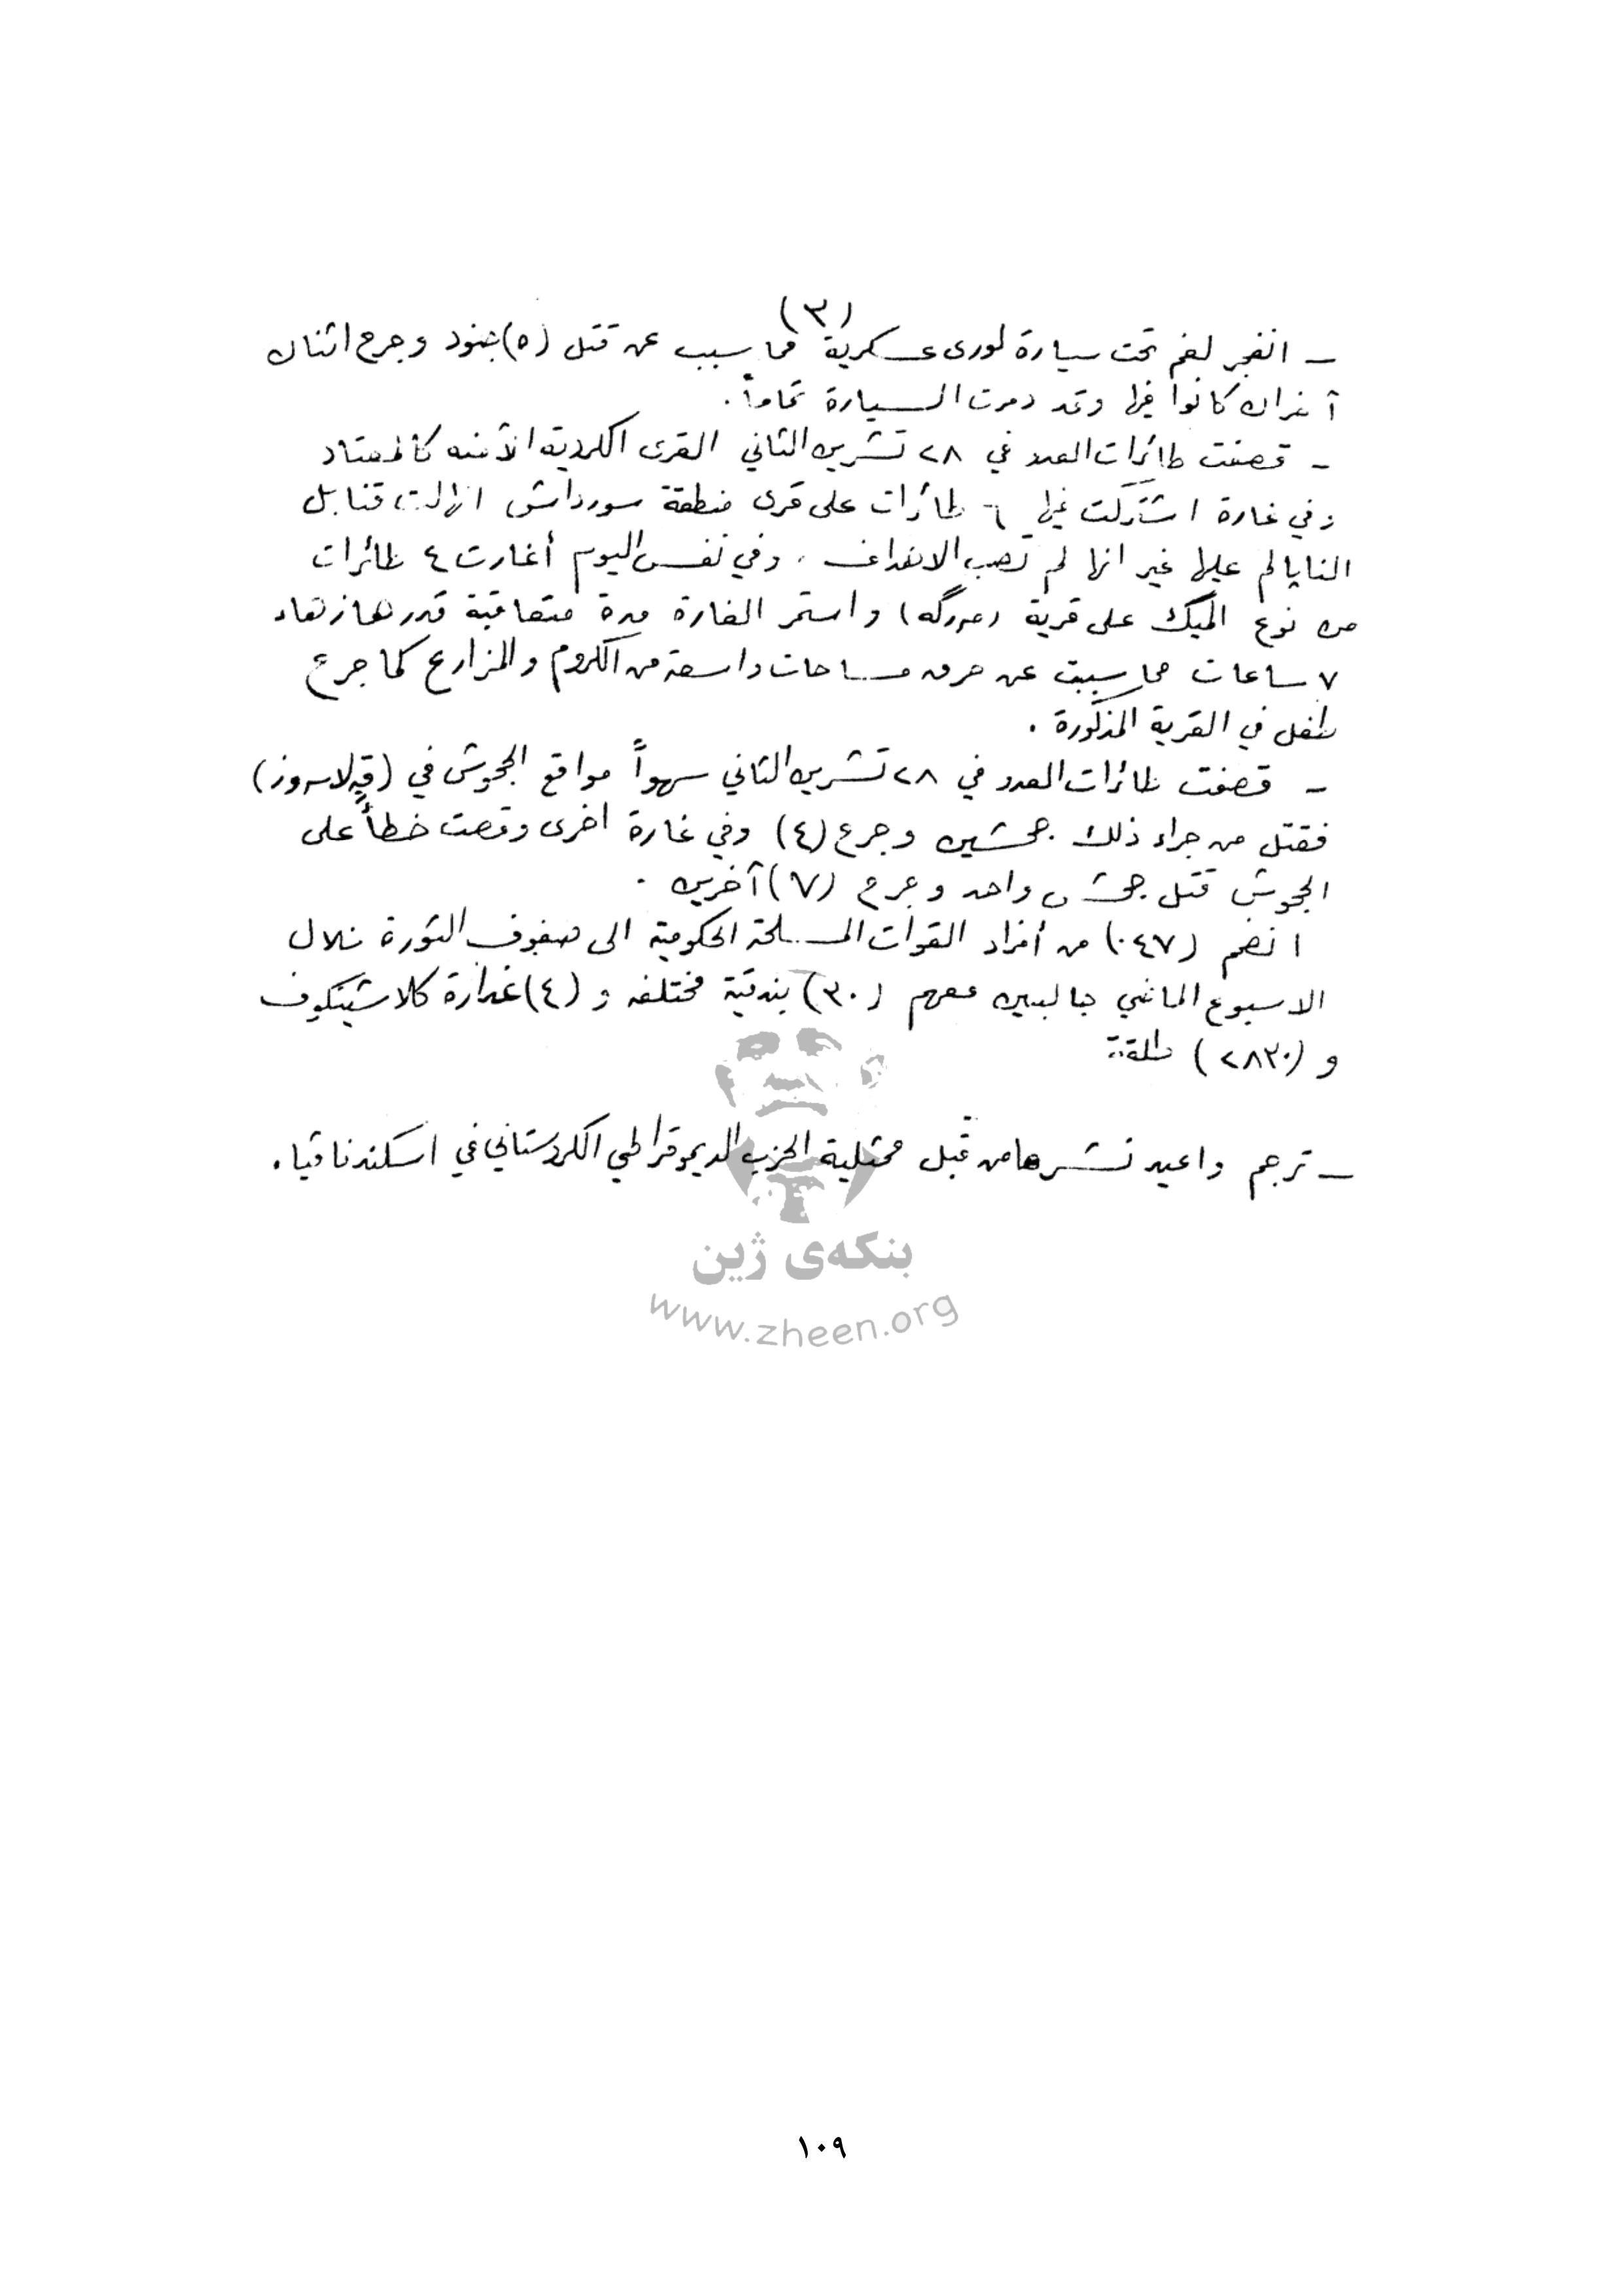 (٣)
ـ انفجر لغم تحت سيارة لورى عسكرية مما سبب عن قتل (٥) جنود وجرح اثنان
آخران كانوا فيها وقد دمرت السيارة تماماً .
ـ قصفت طائرات العدو في ٢٨ تشرين الثاني القرى الكردية الآمنه كالمعتاد
وفي غارة اشتركت فيها ٦ طائرات على قرى منطقة سورداش انهالت قنابل
الناپالم عليها غير انها لم تصب الاهداف . وفي نفس اليوم أغارت ٤ طائرات
من نوع الميگ على قرية (مەرگه) واستمر الغارة مدة متعاقبة قدرها زهاء
٧ ساعات مما سببت عن حرق مساحات واسعة من الكروم والمزارع كما جرح
طفل في القرية المذكورة .
ـ قصفت طائرات العدو في ٢٨ تشرين الثاني سهواً مواقع الجحوش في
فقتل من جراء ذلك جحشين وجرح (٤) وفي غارة اخرى وقعت خطأً على
الجحوش قتل جحش واحد وجرح (٧) آخرين .
انضم من أفراد القوات المسلحة الحكومية الى صفوف الثورة خلال
الاسبوع الماضي جالبين معهم (٣٠) بندقية مختلفه و (٤) غدارة كلاشينكوف
و (٢٨٣٠) طلقة
ـ ترجم واعيد نشرها من قبل ممثلية الحزب الديموقراطي الكردستاني في اسكندناڤيا .
بنکەی ژین
www.zheen.org
١٠٩